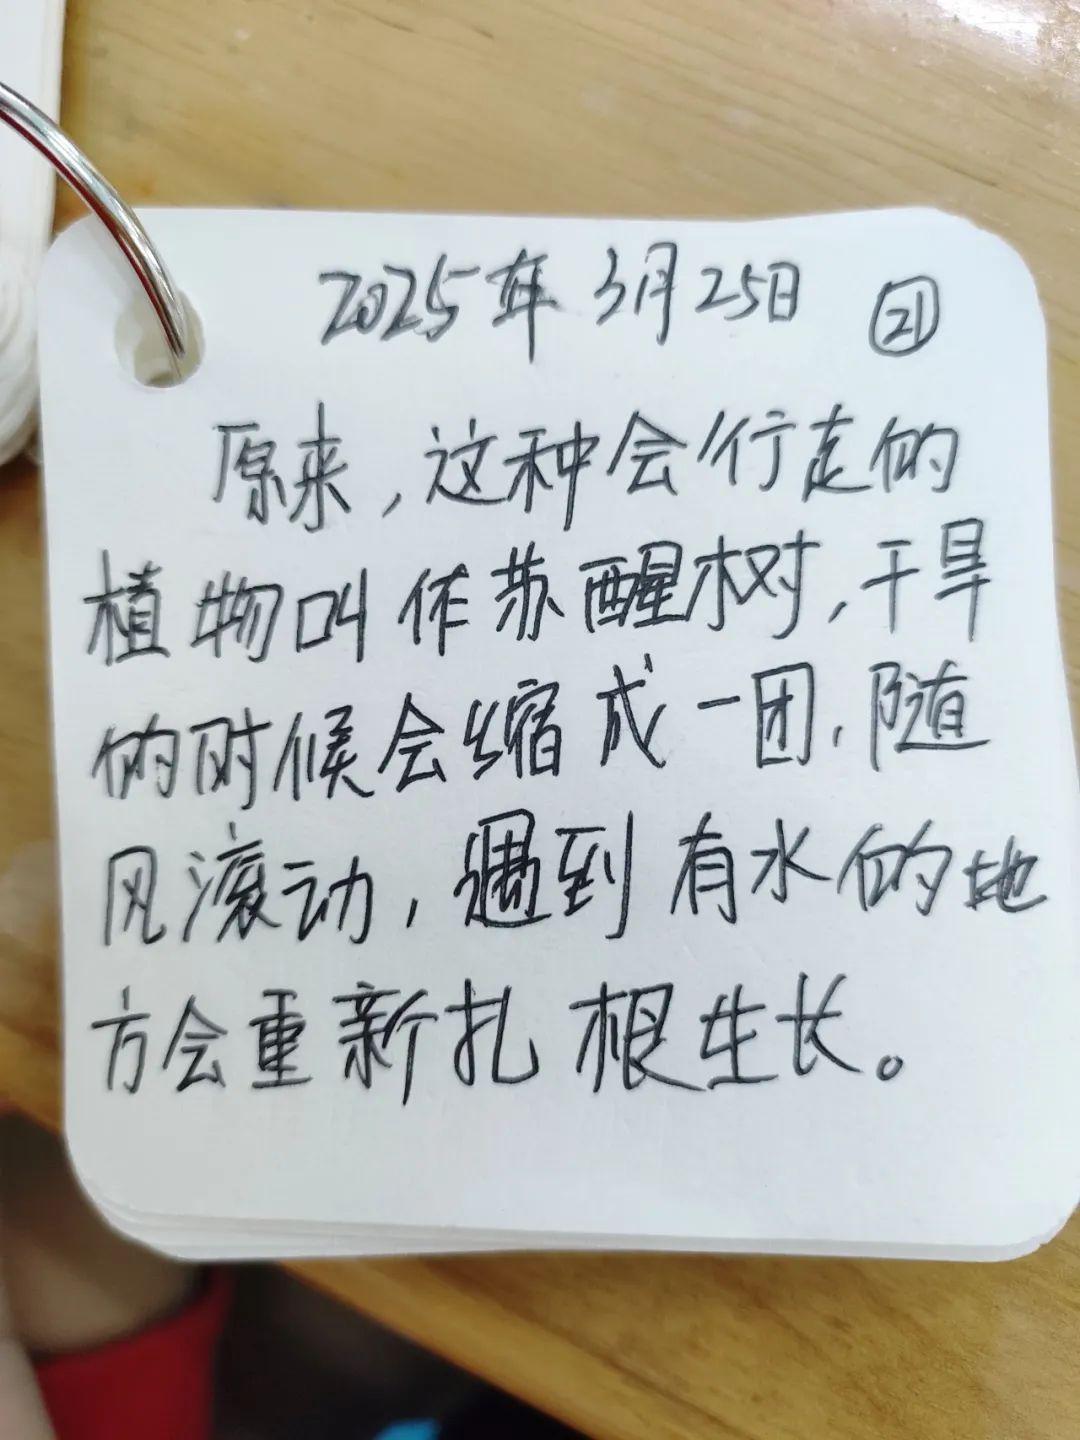 2025年3月25日 ㉑
原来，这种会行走的
植物叫作苏醒树，干旱
的时候会缩成一团，随
风滚动，遇到有水的地
方会重新扎根生长。